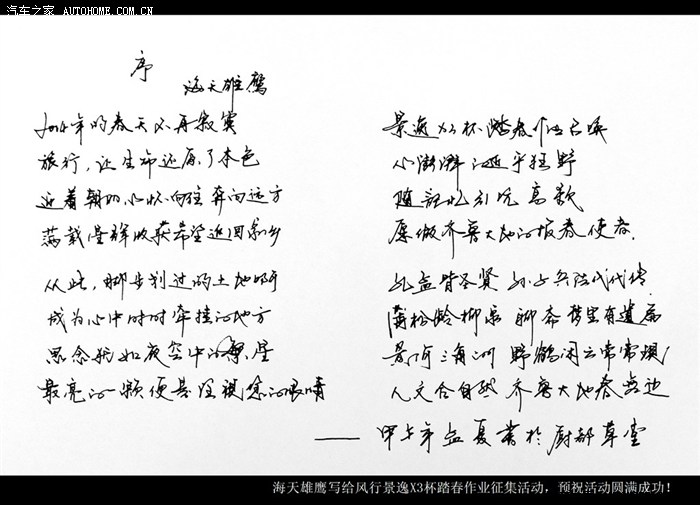 汽车之家 AUTOHOME.COM.CN
序
海天雄鹰
2014年的春天不再寂寞
旅行，让生命还原了本色
迎着朝阳，心怀向往奔向远方
满载 收获希望返回家乡
从此，脚步划过的土地啊
成为心中时时牵挂的地方
思念就如夜空中的繁星
最亮的一颗便是注视您的眼睛
景逸X3杯踏春作业召唤
心潮澎湃 乎狂野
随 引吭高歌
愿做齐鲁大地的报春使者
孔孟皆圣贤 孙子兵法代代传
蒲松龄柳泉 聊斋 里有遗篇
黄河三角洲 野鹤闲云常常现
人文合自然 齐鲁大地春无边
—— 甲午年孟夏书于厨都草堂
海天雄鹰写给风行景逸X3杯踏春作业征集活动，预祝活动圆满成功！